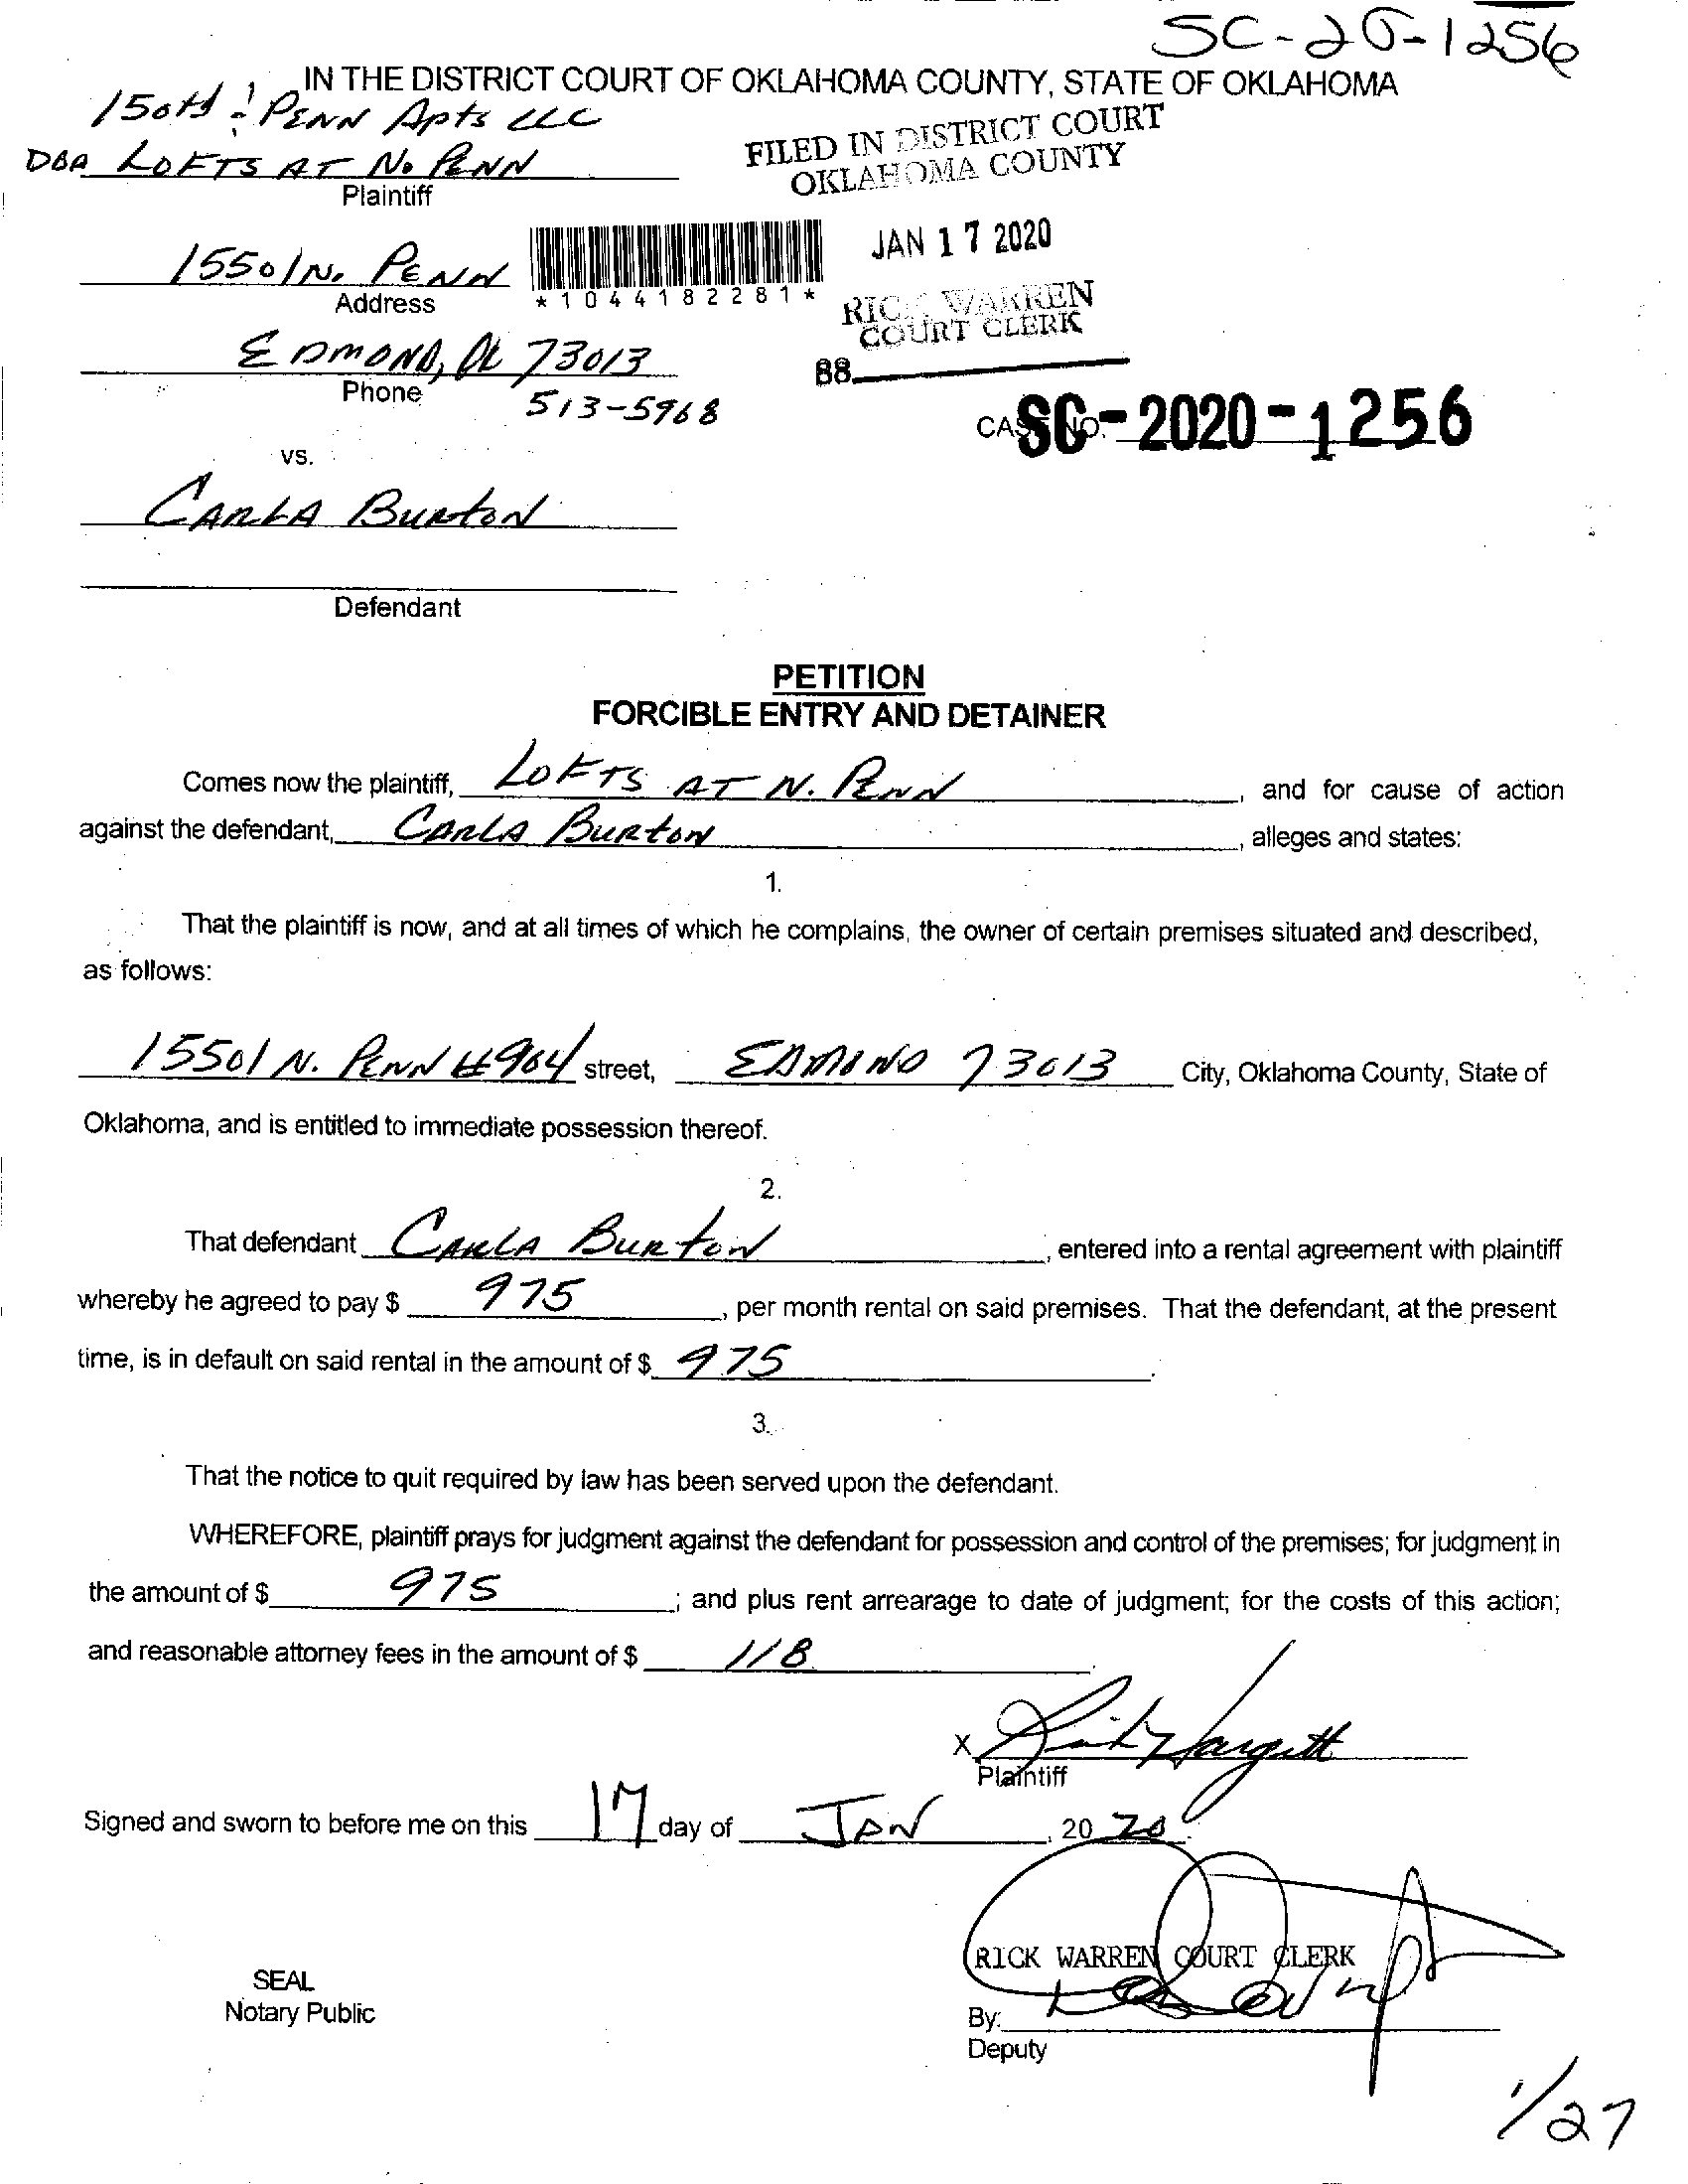 SC-20-1256
IN THE DISTRICT COURT OF OKLAHOMA COUNTY, STATE OF OKLAHOMA
150th & PENN Apts LLC
DBA LOFTS AT No PENN
Plaintiff
FILED IN DISTRICT COURT
OKLAHOMA COUNTY
JAN 17 2020
15501 N. PENN
Address
*1044182281*
RICK WARREN
COURT CLERK
EDMOND, OK 73013
88
Phone
513-5968
CASE NO.
SC-2020-1256
vs.
CARLA BURTON
Defendant
PETITION
FORCIBLE ENTRY AND DETAINER
Comes now the plaintiff, LOFTS AT N. PENN, and for cause of action
against the defendant, CARLA BURTON, alleges and states:
1.
That the plaintiff is now, and at all times of which he complains, the owner of certain premises situated and described,
as follows:
15501 N. PENN #904 street, EDMOND 73013 City, Oklahoma County, State of
Oklahoma, and is entitled to immediate possession thereof.
2.
That defendant CARLA BURTON, entered into a rental agreement with plaintiff
whereby he agreed to pay $ 975, per month rental on said premises. That the defendant, at the present
time, is in default on said rental in the amount of $ 975.
3.
That the notice to quit required by law has been served upon the defendant.
WHEREFORE, plaintiff prays for judgment against the defendant for possession and control of the premises; for judgment in
the amount of $ 975; and plus rent arrearage to date of judgment; for the costs of this action;
and reasonable attorney fees in the amount of $ 118.
X
Plaintiff
Signed and sworn to before me on this 17 day of JAN, 20 20.
RICK WARREN COURT CLERK
SEAL
Notary Public
By:
Deputy
1/27